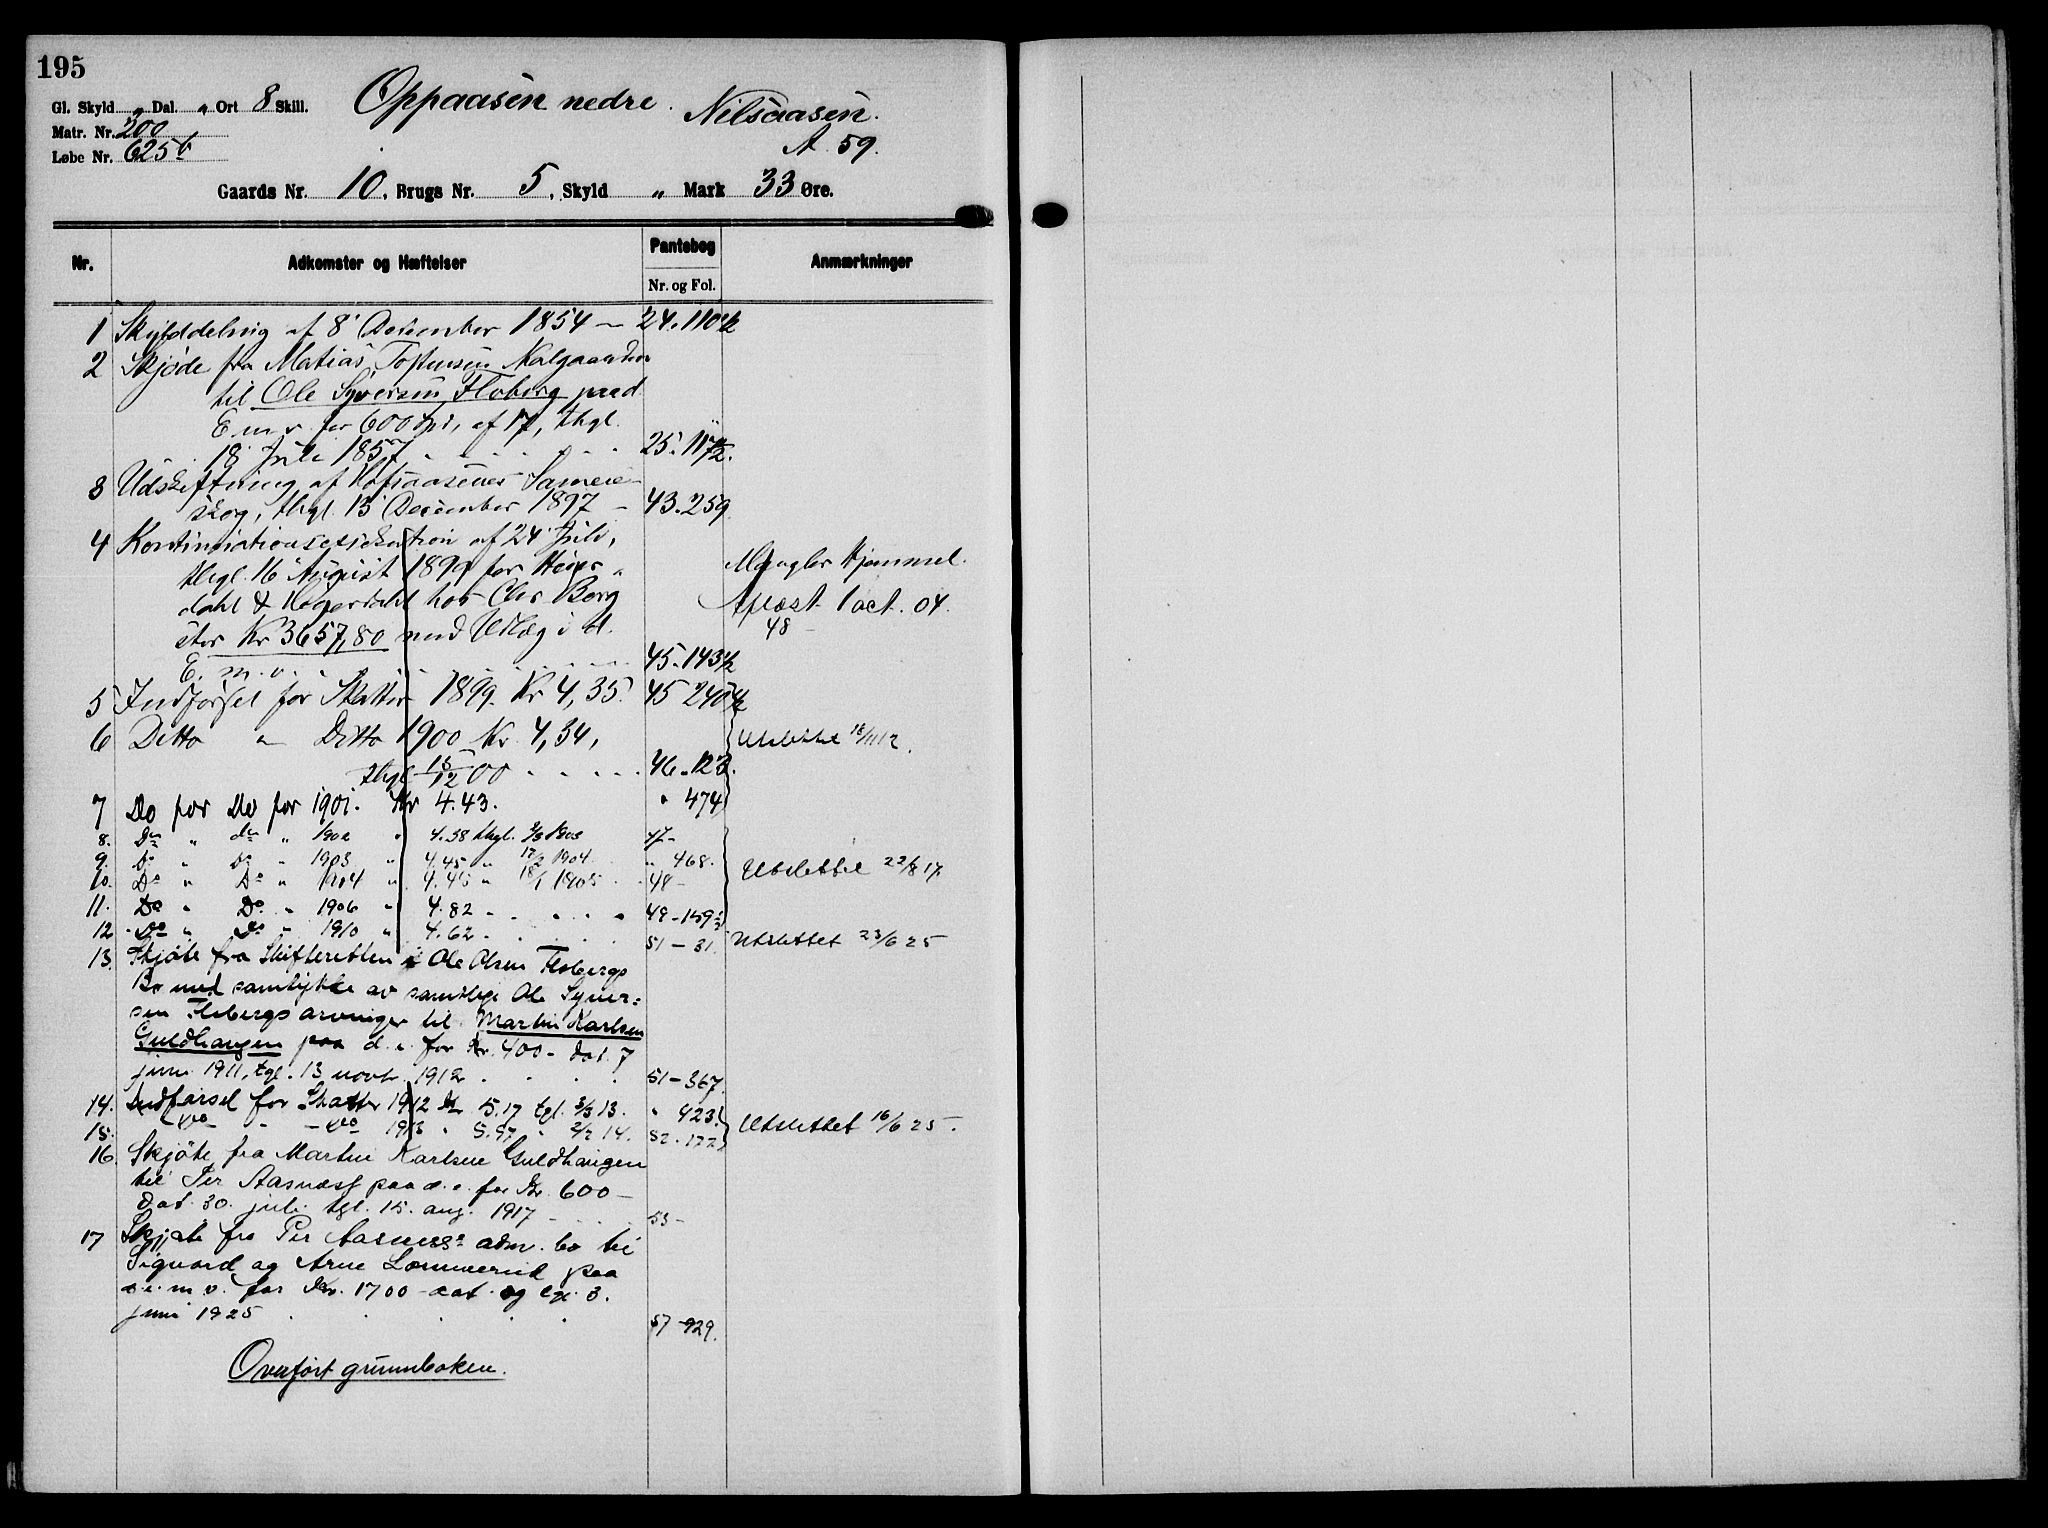 195
Gl. Skyld „ Dal. „ Ort 8 Skill. Oppaasen nedre. Nilsaasen.
Matr. Nr. 200
Løbe Nr. 625 b A. 59.
Gaards Nr. 10, Brugs Nr. 5, Skyld „ Mark 33 Øre.
Nr. Adkomster og Hæftelser Pantebog Nr. og Fol. Anmærkninger
1 Skylddeling af 8 December 1854 — 24. 110 1/2
2 Skjøde fra Matias Tostensen
til Ole Syversen Floberg paa d
E. m. v. for 600 Spd, af 17, thgl.
18 Juli 1857 . . . . 25. 117 1/2.
3 Udskiftning af Sameie
skog, thgl. 13 December 1897 — 43. 259
4 af 24 Juli,
thgl. 16 August 1899 for Heyer
dahl & Høyerdahl hos Ole Berg Mangler Hjemmel.
stor Kr 3657,80 med Udlæg i d. Aflæst 1 oct. 04.
48
E. m. v. . . . 45. 143 1/2
5 Indførsel for Skatter 1899. Kr 4,35. 45 240 1/2
6 Ditto „ Ditto 1900 Kr. 4,34, Utslettet 18/11 12.
thgl 15/12 00 . . . . 46. 123.
7 Do for Do for 1901. Kr 4.43. " 474
8. Do " do " 1902 " 4.38 thgl. 3/3 1903 47-
9. Do " Do " 1903 " 4.45 " 17/2 1904. " 468. Utslettet 22/8 17
10. Do " Do " 1904 " 4.45 " 18/1 1905 48-
11. Do " Do " 1906 " 4.82 . . . . 49-159 1/2
12. Do " Do " 1910 " 4.62 . . . 51-31. Utslettet 23/6 25
13. Skjøte fra Skifteretten i Ole Olsen Flobergs
Bo med samtykke av samtlige Ole Syver=
sen Flobergs arvinger til Martin Karlsen
Guldhaugen paa d. e. for Kr. 400- dat. 7
juni 1911, tgl. 13 novbr. 1912 . . . 51-367.
14. Indførsel for Skatter 1912 Kr 5.17 tgl. 3/3 13. " 423. Utslettet 16/6 25.
15. Do - Do 1913 " 5.97 " 2/2 14. 52. 122
16. Skjøte fra Martin Karlsen Guldhaugen
til Per Aasnæss paa d. e. for Kr. 600—
dat. 30. juli tgl. 15. aug. 1917 . . . 53-
17 Skjøte fra Per Aasnæss' adm. bo til
Sigvard og Arne Lommerud paa
d. e. m. v. for Kr. 1700 - dat. og tgl. 3.
juni 1925 . . . . 57-929.
Overført grunnboken.